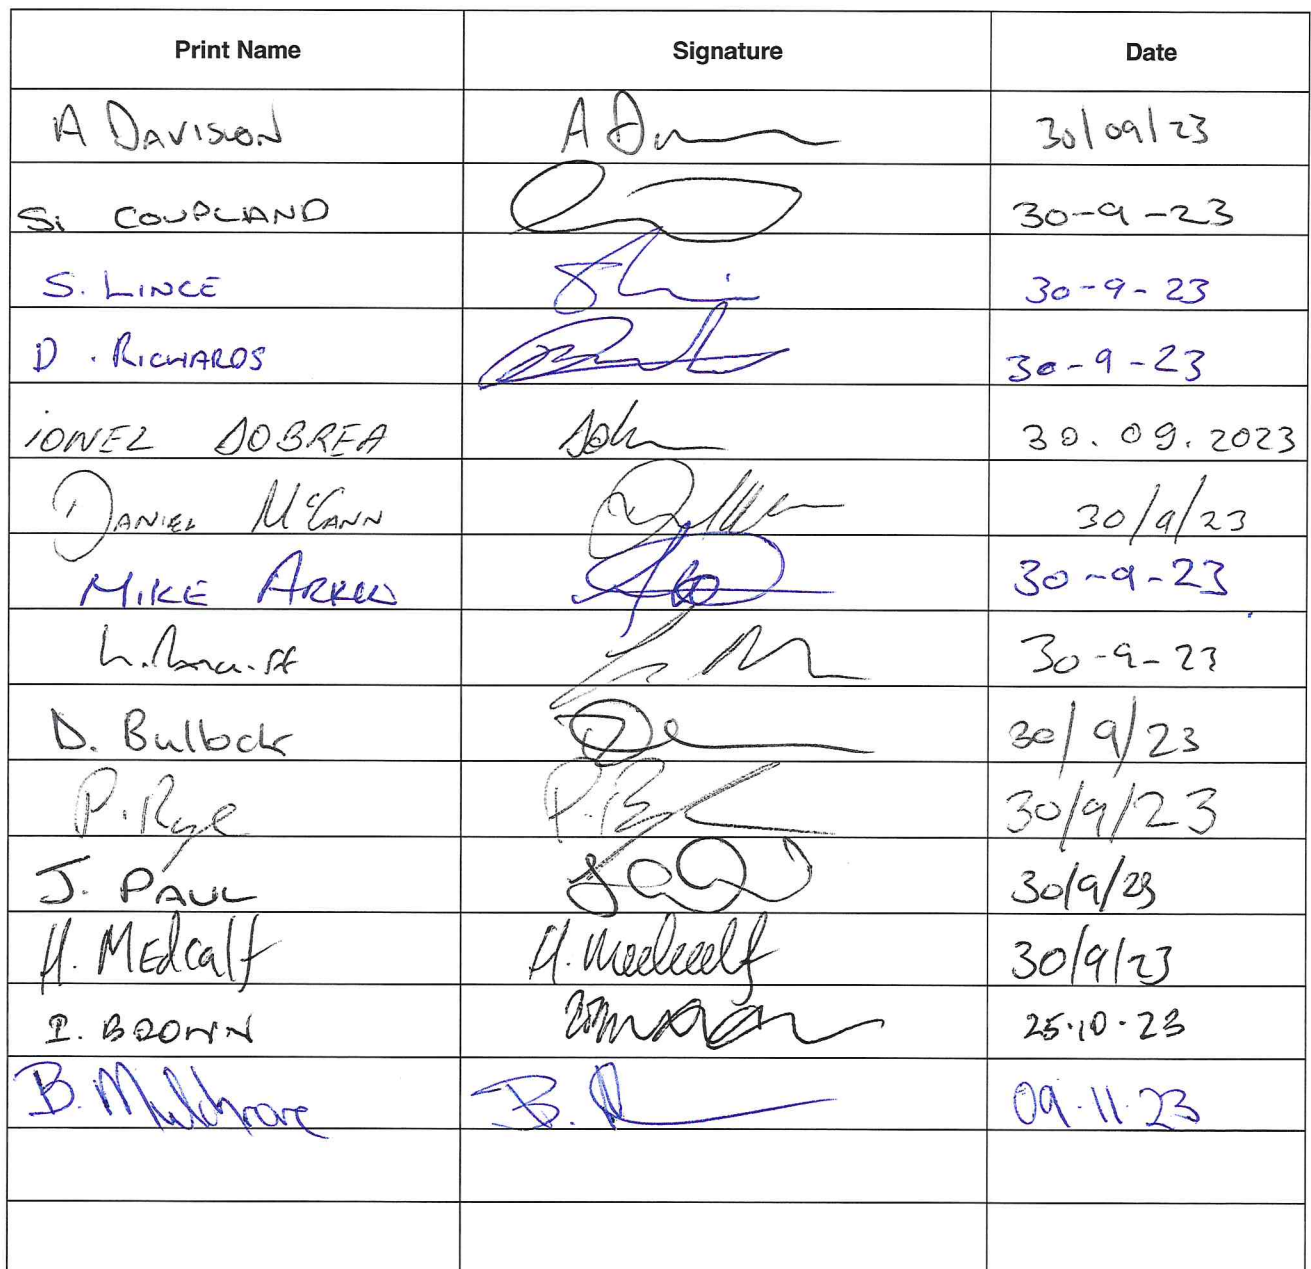 Print Name Signature Date
A DAVISON A D 30/09/23
S. COUPLAND 30-9-23
S. LINCE 30-9-23
D. RICHARDS 30-9-23
IONEL DOBREA 30.09.2023
DANIEL McCANN 30/9/23
MIKE 30-9-23
L. 30-9-23
D. Bullock 30/9/23
P. Rye P. 30/9/23
J. PAUL 30/9/23
H. MEdcalf H. Medcalf 30/9/23
I. BROWN 25.10.23
B. Mulgrove B. 09.11.23